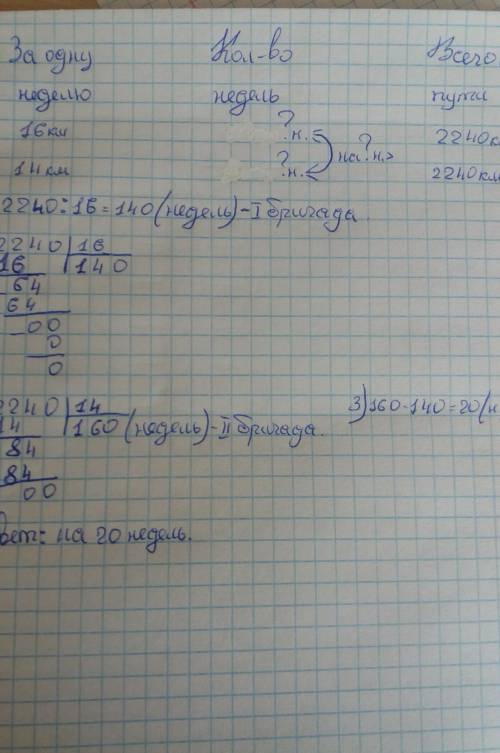 За одну Кол-во Всего
неделю недель пути
16км ?н. 2240к
на?н.>
14км ?н. 2240км
2240:16=140(недель)-I бригада.
2240|16
16 140
64
64
00
0
0
2240|14 3)160-140=20(н
14 160(недель)-II бригада.
84
84
00
вет: на 20 недель.